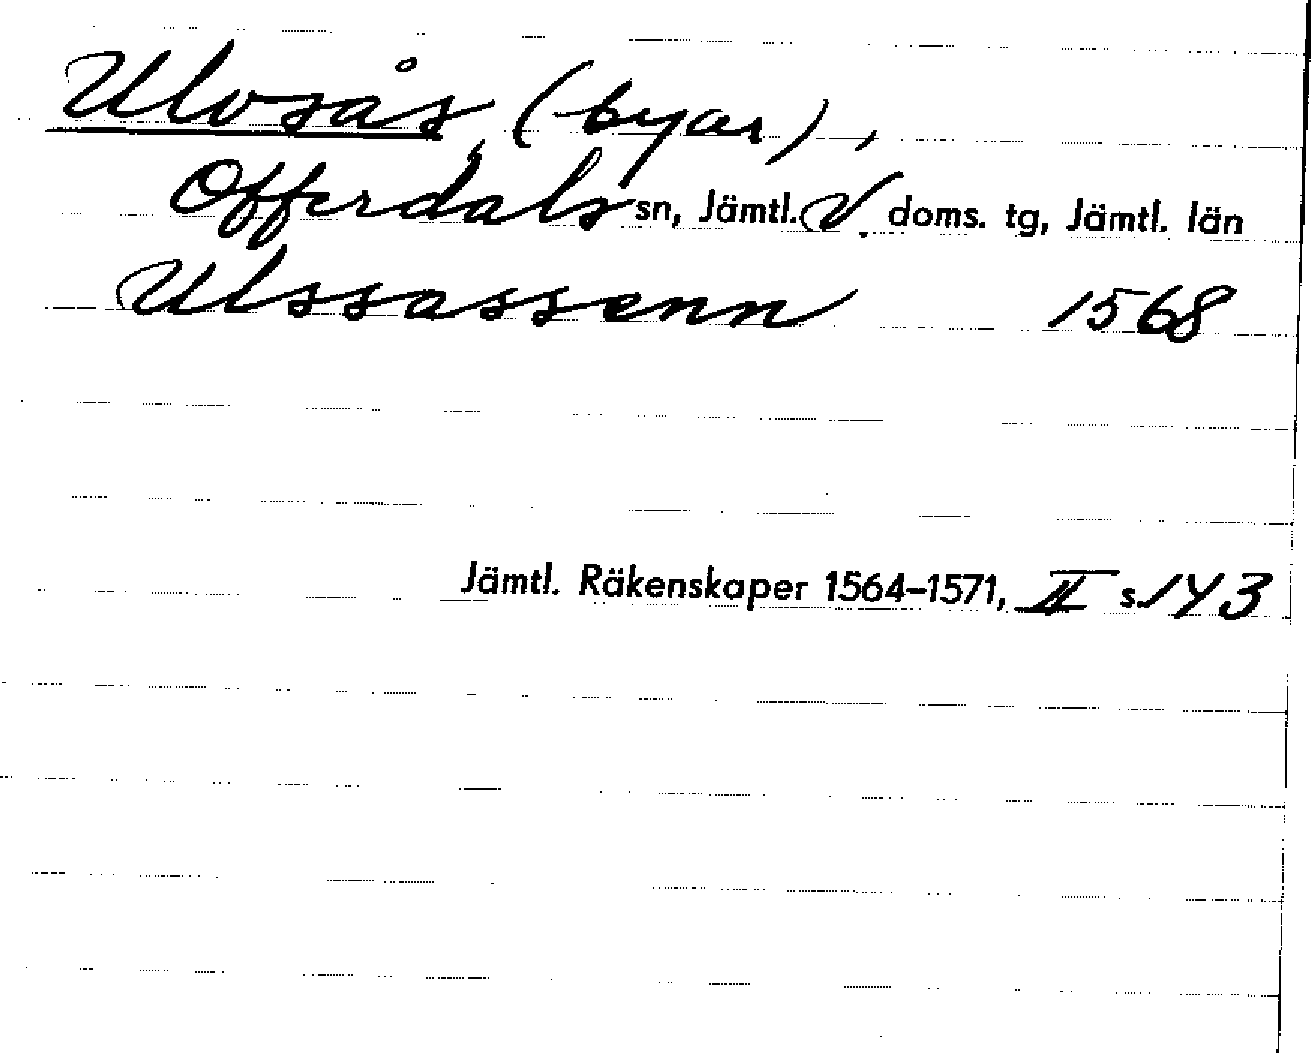 Ulvsås (byar),
Offerdals sn, Jämtl. V. doms. tg, Jämtl. län
Ulssassenn 1568
Jämtl. Räkenskaper 1564–1571, II s. 143